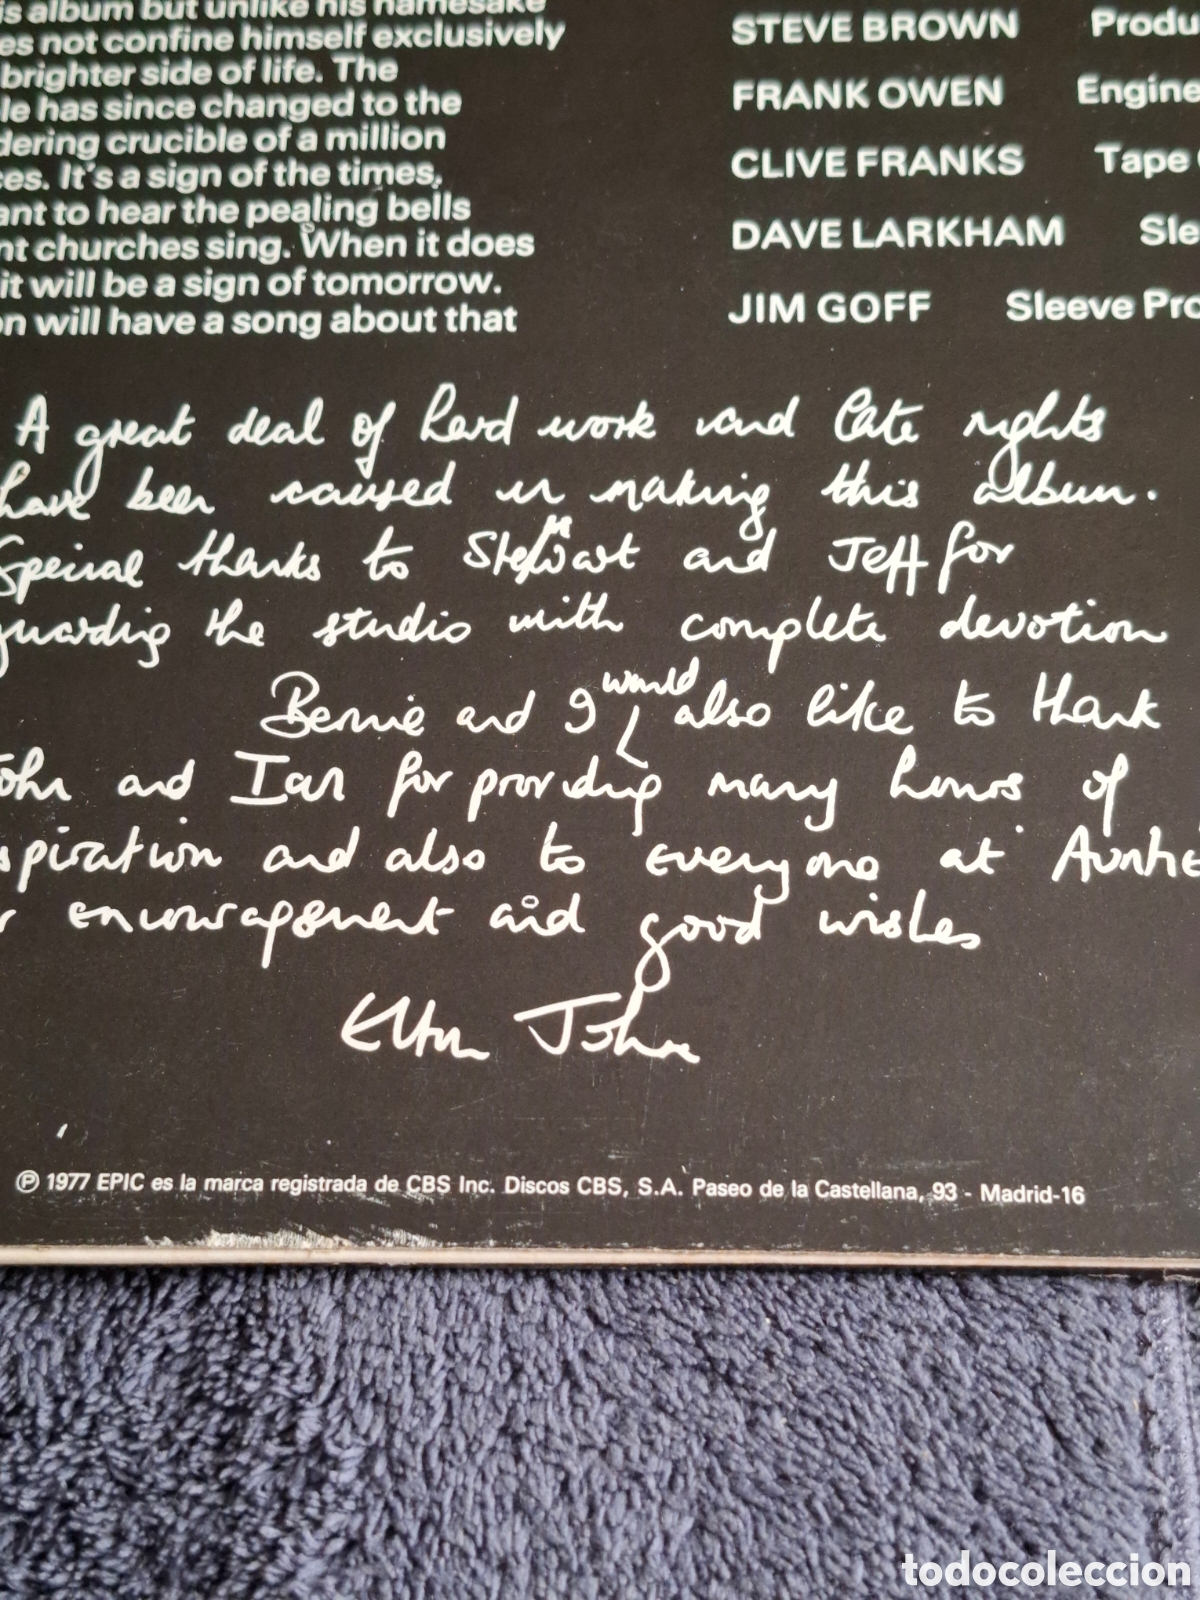 is album but unlike his namesake
es not confine himself exclusively
brighter side of life. The
le has since changed to the
dering crucible of a million
ces. It's a sign of the times,
ant to hear the pealing bells
nt churches sing. When it does
it will be a sign of tomorrow.
on will have a song about that
STEVE BROWN Produ
FRANK OWEN Engine
CLIVE FRANKS Tape
DAVE LARKHAM Sle
JIM GOFF Sleeve Pro
A great deal of hard work and late nights
have been caused in making this album.
Special thanks to Stewart and Jeff for
guarding the studio with complete devotion
Bernie and I would also like to thank
John and Ian for providing many hours of
spiration and also to everyone at Auntie
r encouragement and good wishes
Elton John
℗ 1977 EPIC es la marca registrada de CBS Inc. Discos CBS, S.A. Paseo de la Castellana, 93 - Madrid-16
todocoleccion